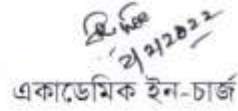 2/2/2022
একাডেমিক ইন-চার্জ